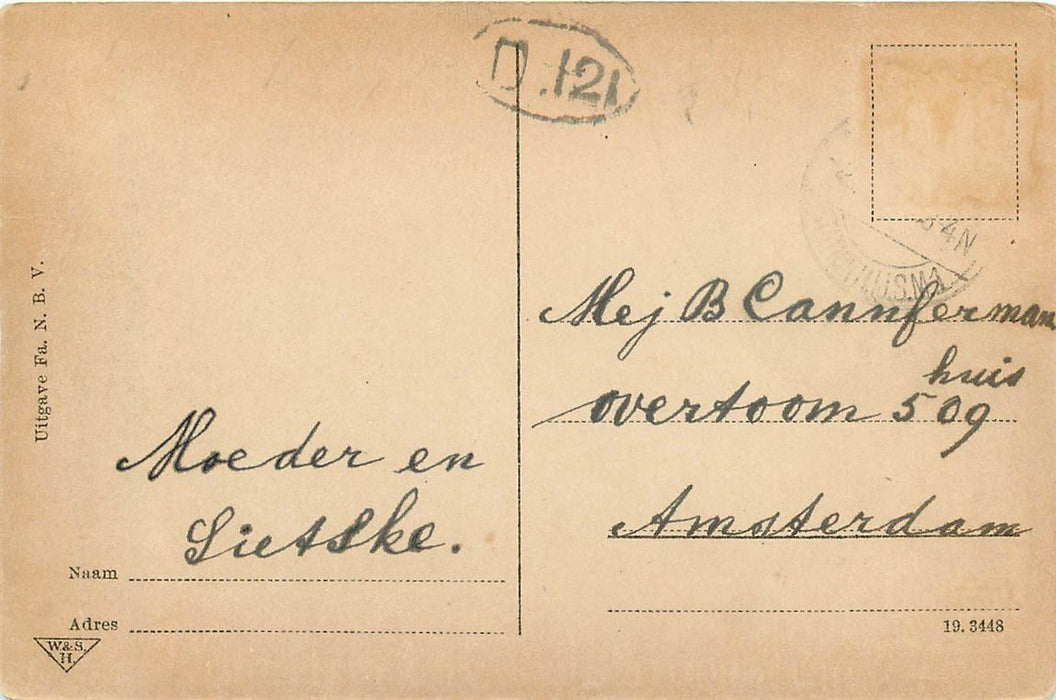 D.121
4N
Uitgave Fa. N. B. V.
Moeder en
Sietske.
Naam
Adres
W.&S.
H.
Mej B Cannferman
huis
overtoom 509
Amsterdam
19. 3448